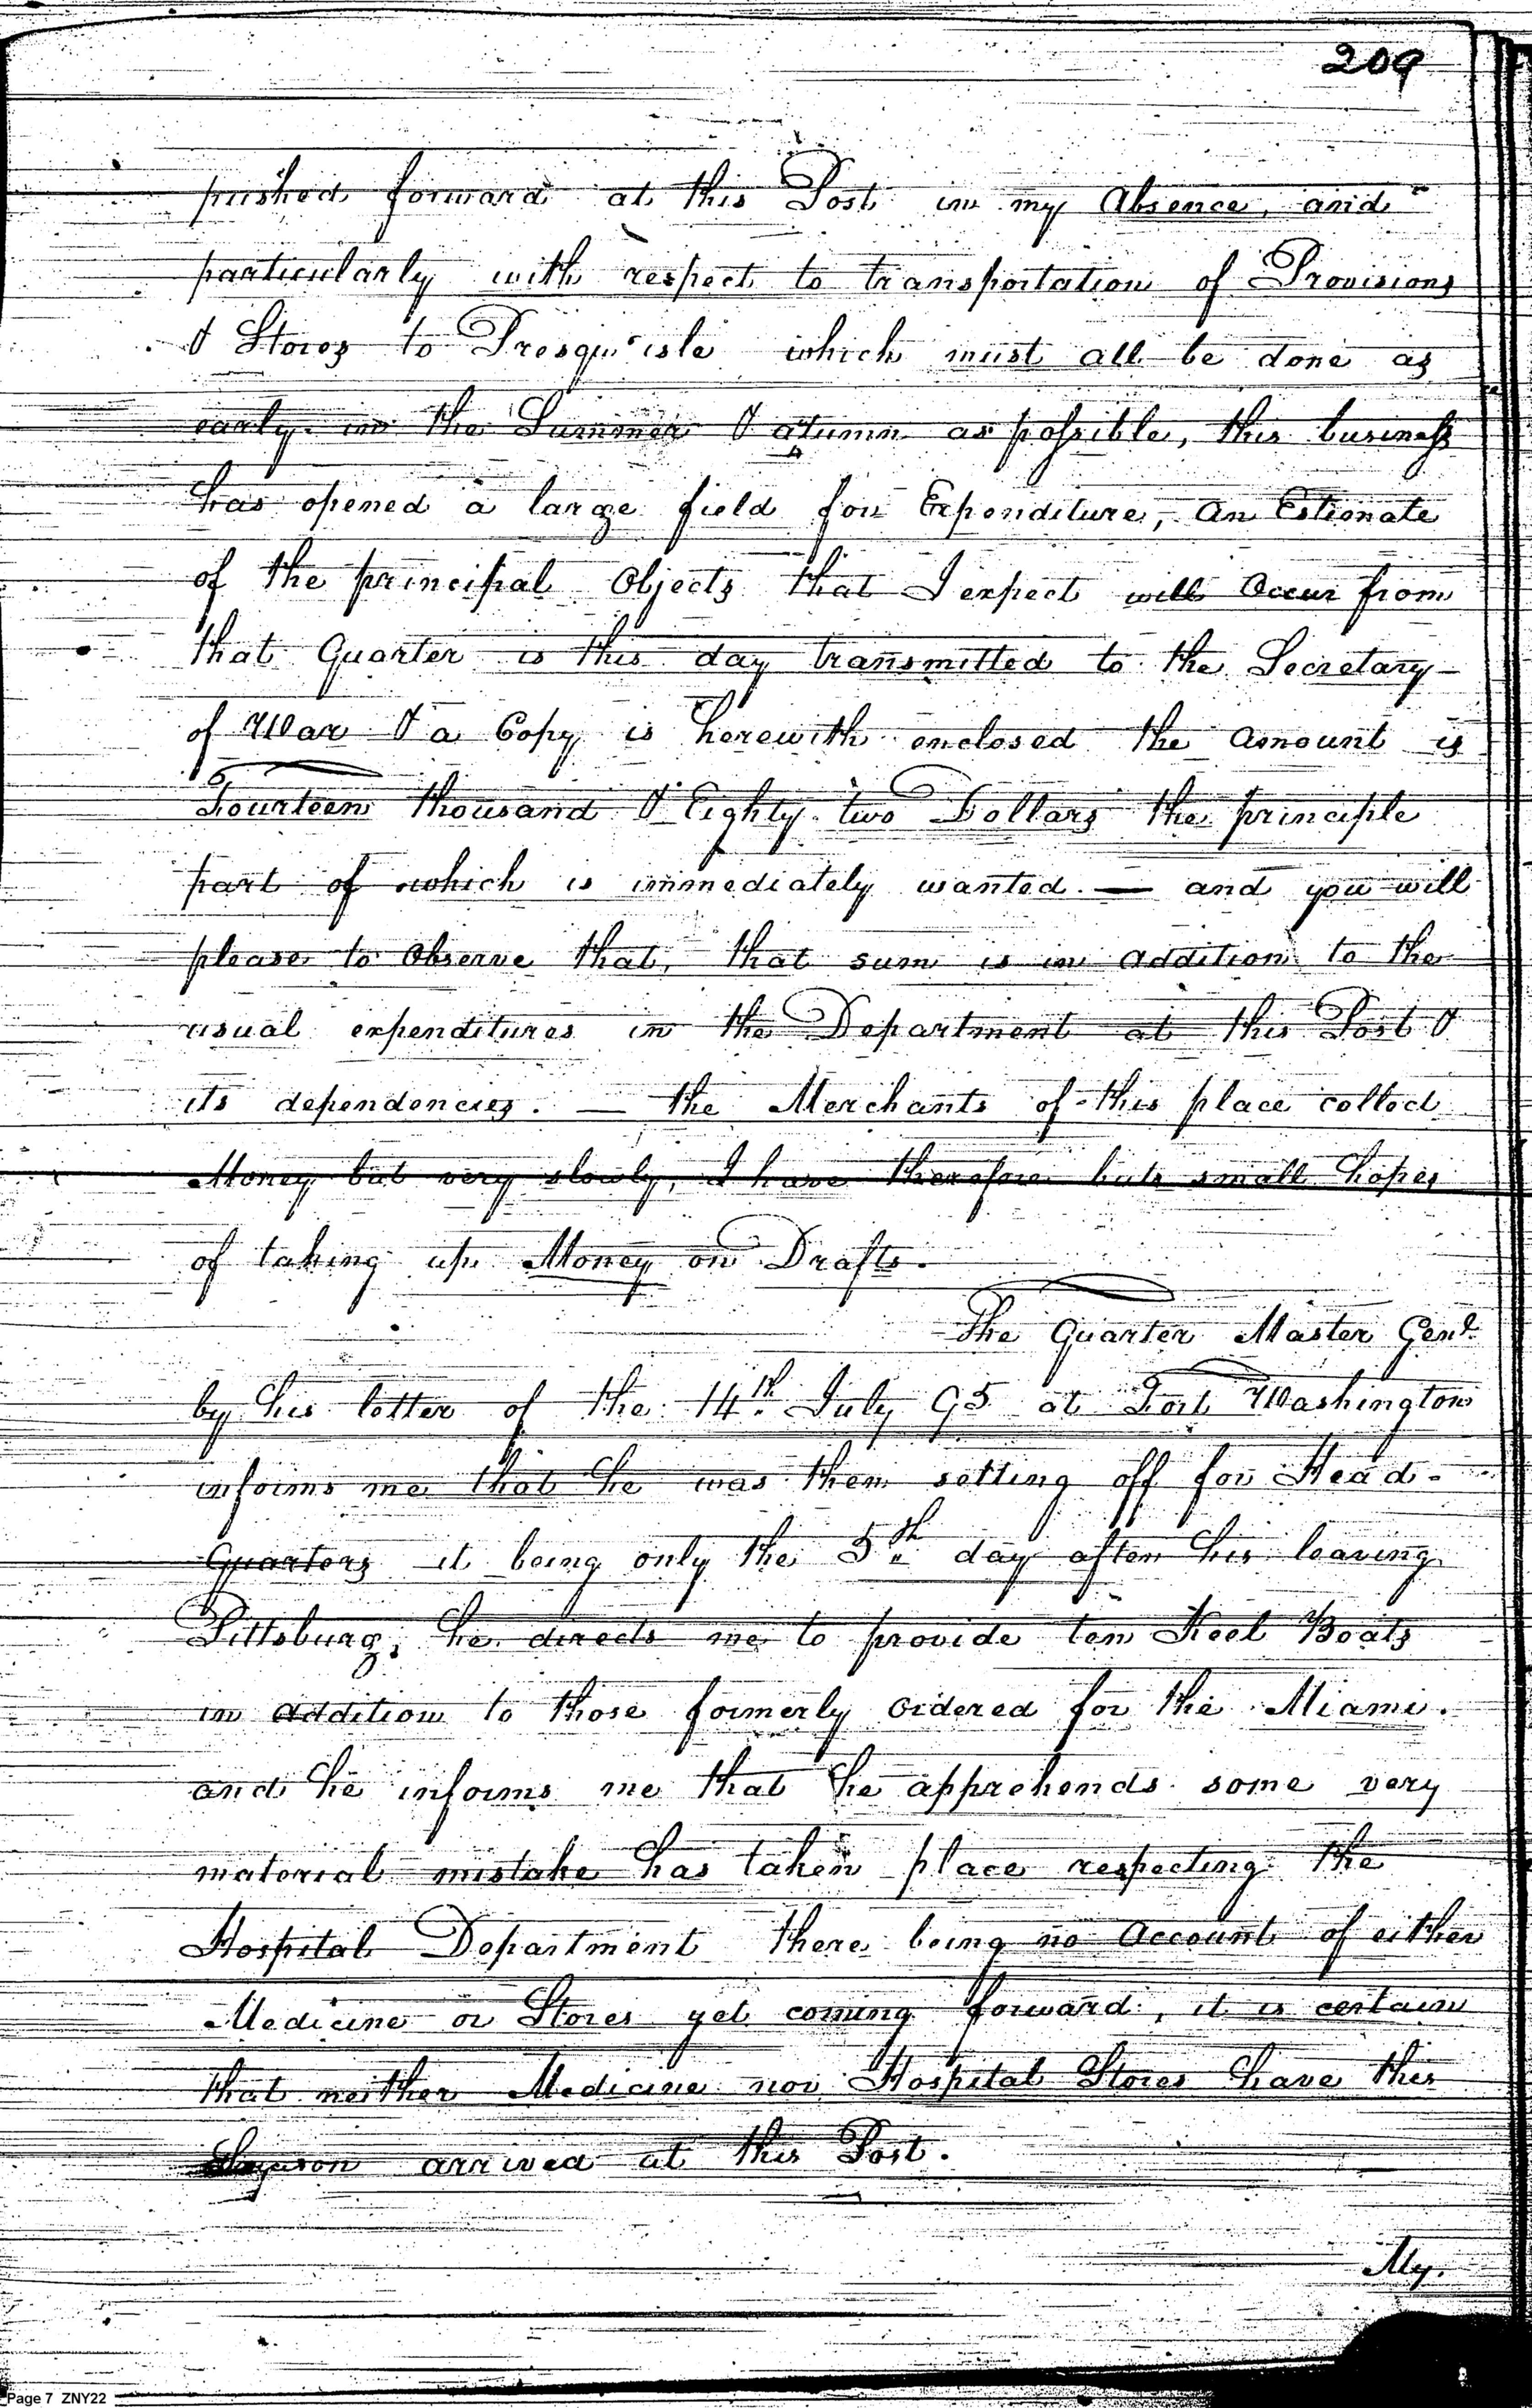 209
pushed forward at this Post in my Absence, and
particularly with respect to transportation of Provisions
& Stores to Presqu'isle which must all be done as
early in the Summer & atumn as possible, this business
has opened a large field for Expenditure, an Estimate
of the principal Objects that I expect will Occur from
that Quarter is this day transmitted to the Secretary
of War & a Copy is herewith enclosed the amount is
Fourteen thousand & Eighty two Dollars the principle
part of which is immediately wanted. — and you will
please to Observe that, that sum is in addition to the
usual expenditures in the Department at this Post &
its dependencies. — the Merchants of this place collect
Money but very slowly, I have therefore but small hopes
of taking up Money on Drafts.
The Quarter Master Genl.
by his letter of the 14th. July 95 at Fort Washington
informs me that he was then setting off for Head-
Quarters it being only the 5th day after his leaving
Pittsburg; he directs me to provide ten Keel Boats
in addition to those formerly ordered for the Miami.
and he informs me that he apprehends some very
material mistake has taken place respecting the
Hospital Department there being no Account of either
Medicine or Stores yet coming forward, it is certain
that neither Medicine nor Hospital Stores have this
arrived at this Post.
My.
Page 7 ZNY22